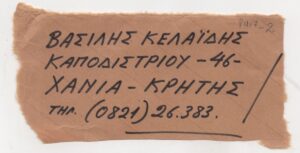 ΒΑΣΙΛΗΣ ΚΕΛΑΪΔΗΣ
ΚΑΠΟΔΙΣΤΡΙΟΥ -46-
ΧΑΝΙΑ - ΚΡΗΤΗΣ
ΤΗΛ. (0821) 26.383.